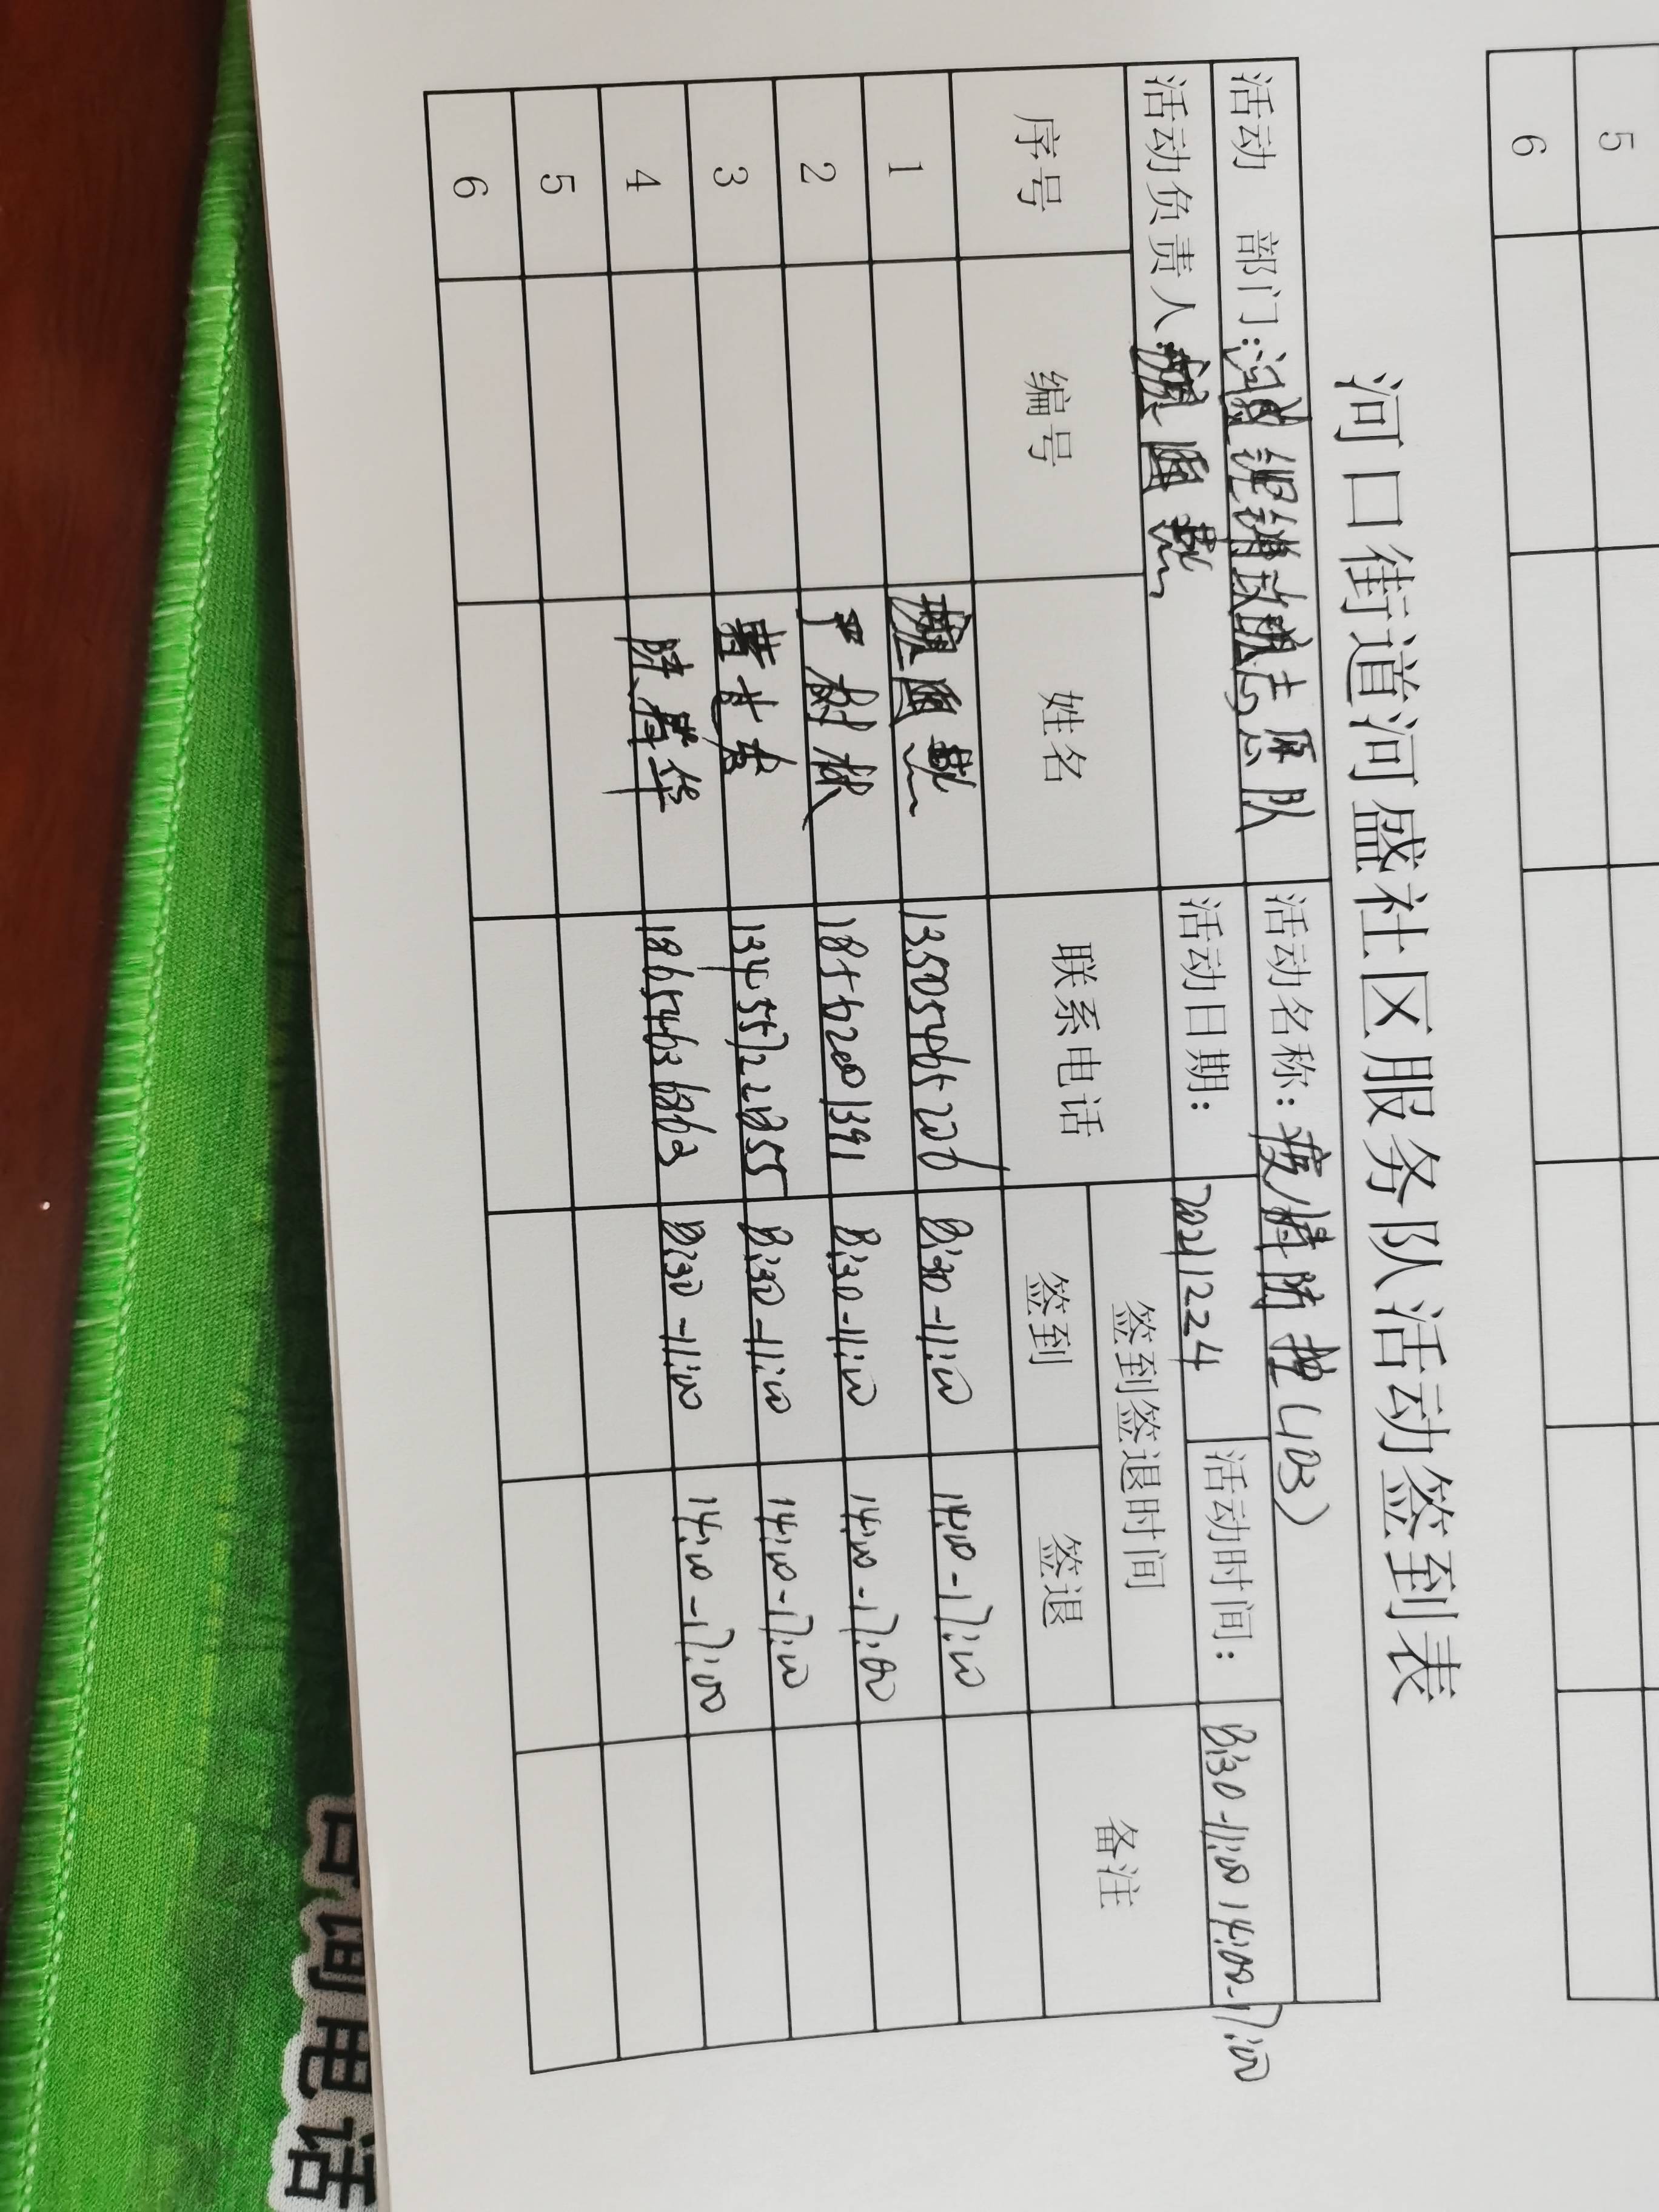 5
6
河口街道河盛社区服务队活动签到表
活动 部门: 志愿队 活动名称: 疫情防控(103)
活动负责人: 活动日期: 20211224 活动时间: 8:30-11:00 14:00-17:00
序号 编号 姓名 联系电话 签到签退时间 备注
签到 签退
1 13505465206 8:30-11:00 14:00-17:00
2 严树林 18562001391 8:30-11:00 14:00-17:00
3 13455722855 8:30-11:00 14:00-17:00
4 陆春华 18654636863 8:30-11:00 14:00-17:00
5
6
咨询电话